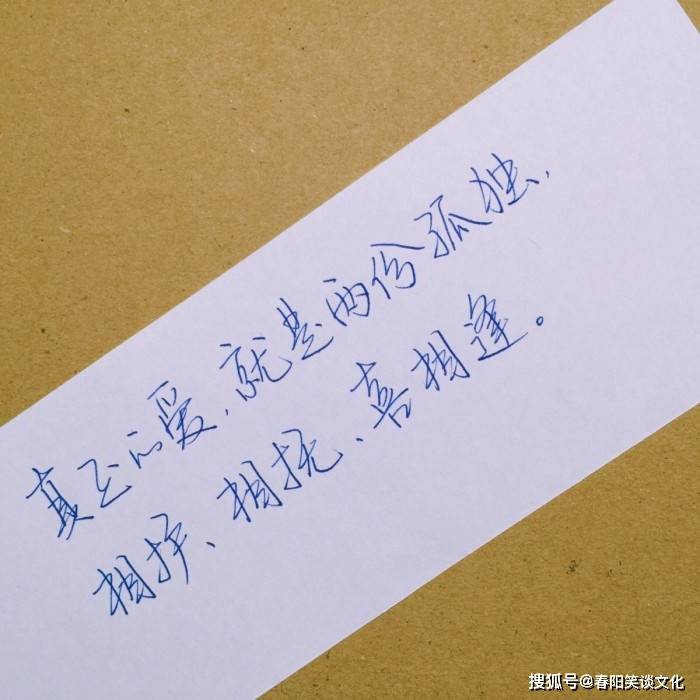 真正的爱，就是两份孤独，
相护、相抚、喜相逢。
搜狐号@春阳笑谈文化